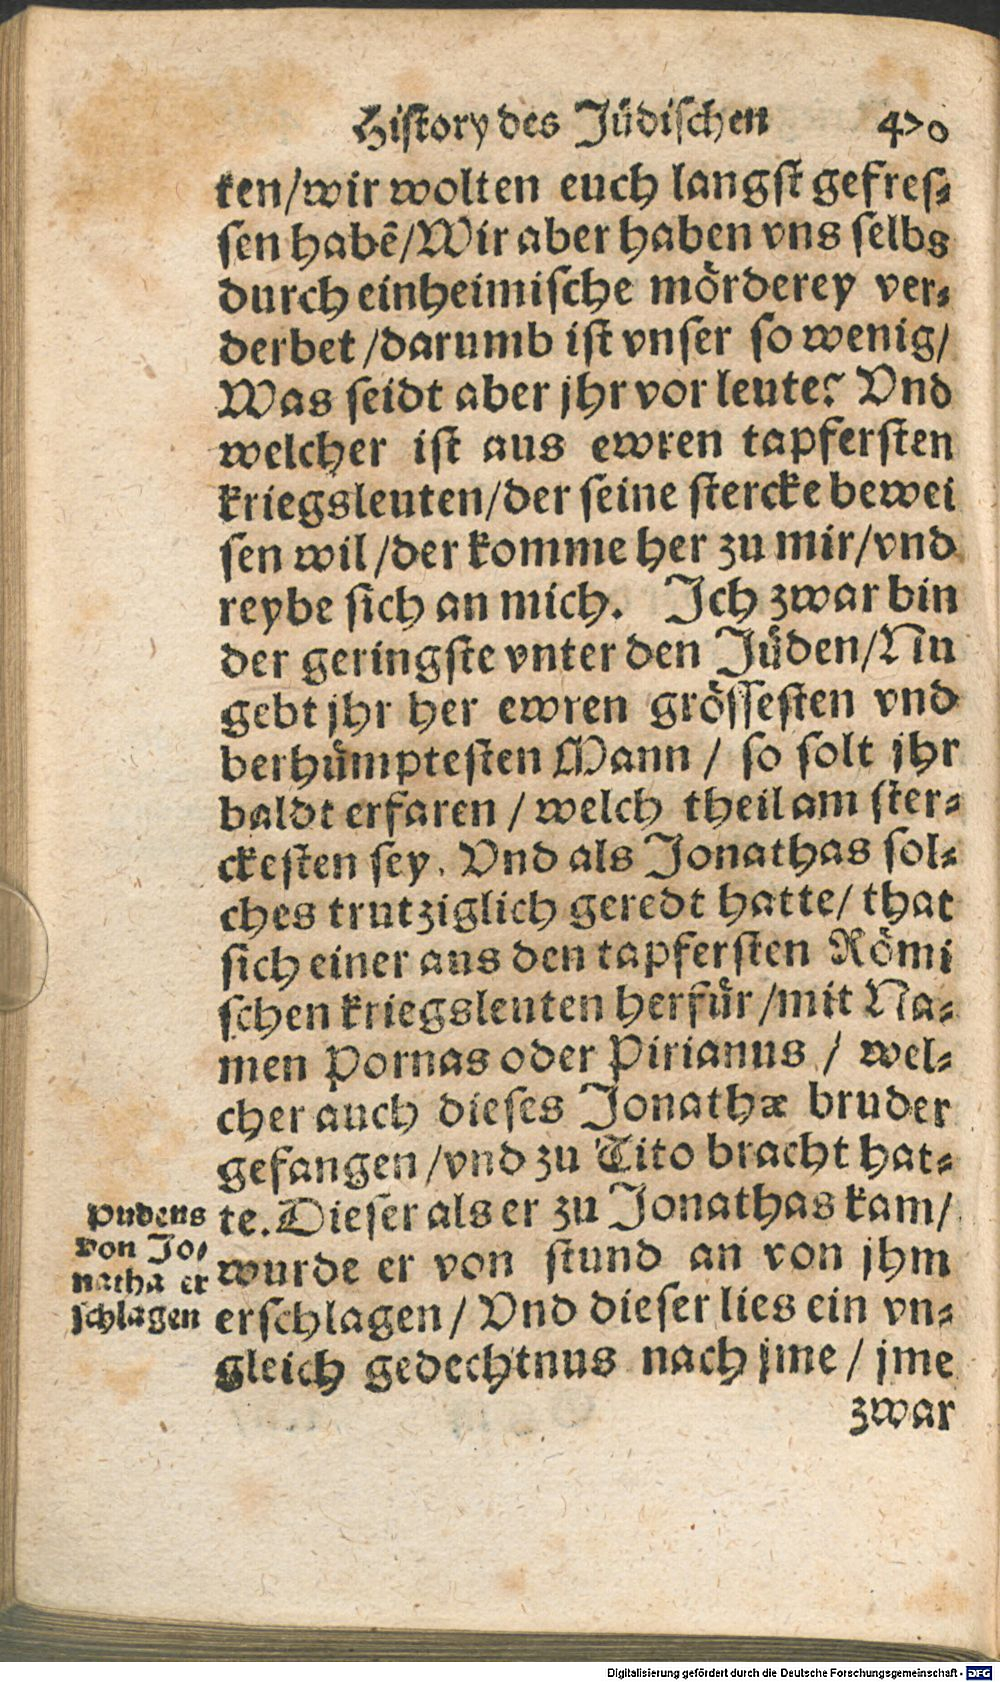 History des Jüdischen 470
ken/wir wolten euch langst gefres-
sen habẽ/Wir aber haben vns selbs
durch einheimische mörderey ver-
derbet/darumb ist vnser so wenig/
Was seidt aber jhr vor leute? Vnd
welcher ist aus ewren tapfersten
kriegsleuten/der seine stercke bewei
sen wil/der komme her zu mir/vnd
reybe sich an mich. Ich zwar bin
der geringste vnter den Jüden/Nu
gebt jhr her ewren grössesten vnd
berhümptesten Mann/ so solt jhr
baldt erfaren/ welch theil am ster-
ckesten sey. Vnd als Jonathas sol-
ches trutziglich geredt hatte/ that
sich einer aus den tapfersten Römi
schen kriegsleuten herfür/mit Na-
men Pornas oder Pirianus/ wel-
cher auch dieses Jonathæ bruder
gefangen/vnd zu Tito bracht hat-
te. Dieser als er zu Jonathas kam/
wurde er von stund an von jhm
erschlagen/ Vnd dieser lies ein vn-
gleich gedechtnus nach jme/ jme
zwar
Pudens
von Jo-
natha er
schlagen
Digitalisierung gefördert durch die Deutsche Forschungsgemeinschaft - DFG